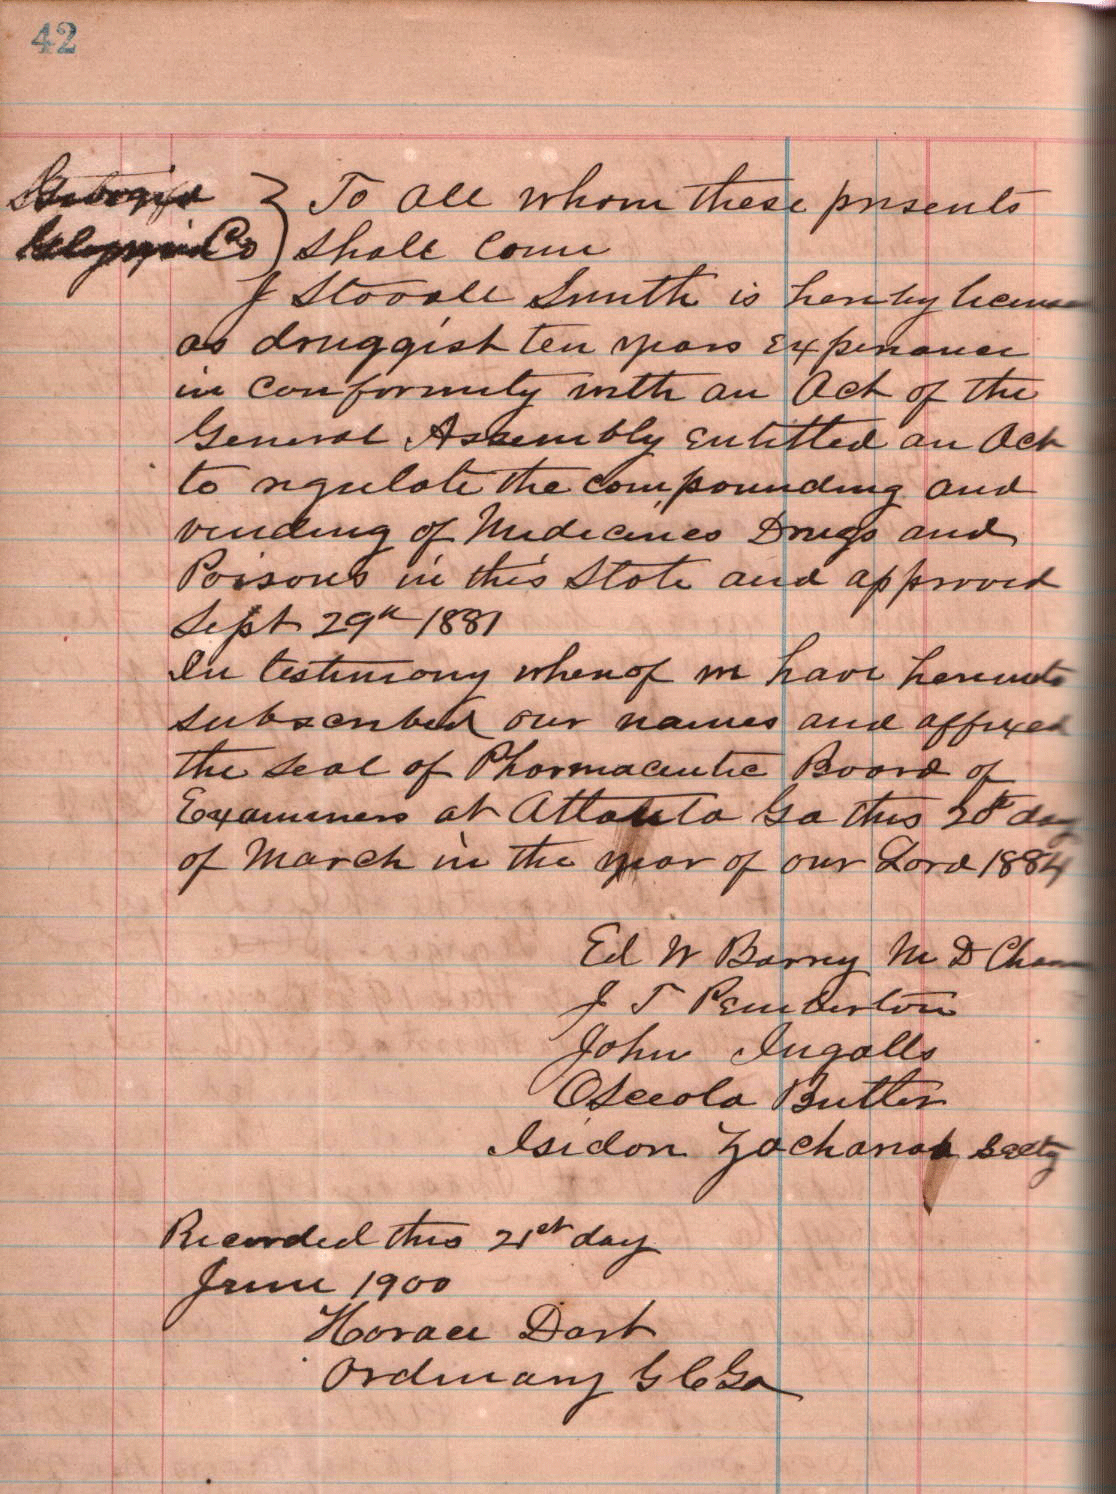 42
To all whom these presents
Co shall Come
J Stovall Smith is hereby licens
as druggist ten years Experience
in Conformity with an Act of the
General Assembly Entitled an Act
to regulate the compounding and
vending of Medicines Drugs and
Poisons in this State and approved
Sept 29th 1881
In testimony whereof we have hereunto
subscribed our names and affixed
the seal of Pharmaceutic Board of
Examiners at Atlanta Ga this day
of March in the year of our Lord 1884
Ed W Barry M D Chair
J T Pemberton
John Ingalls
Osceola Butler
Isidore Zacharias Secty
Recorded this 21st day
June 1900
Horace Dart
Ordinary G C Ga